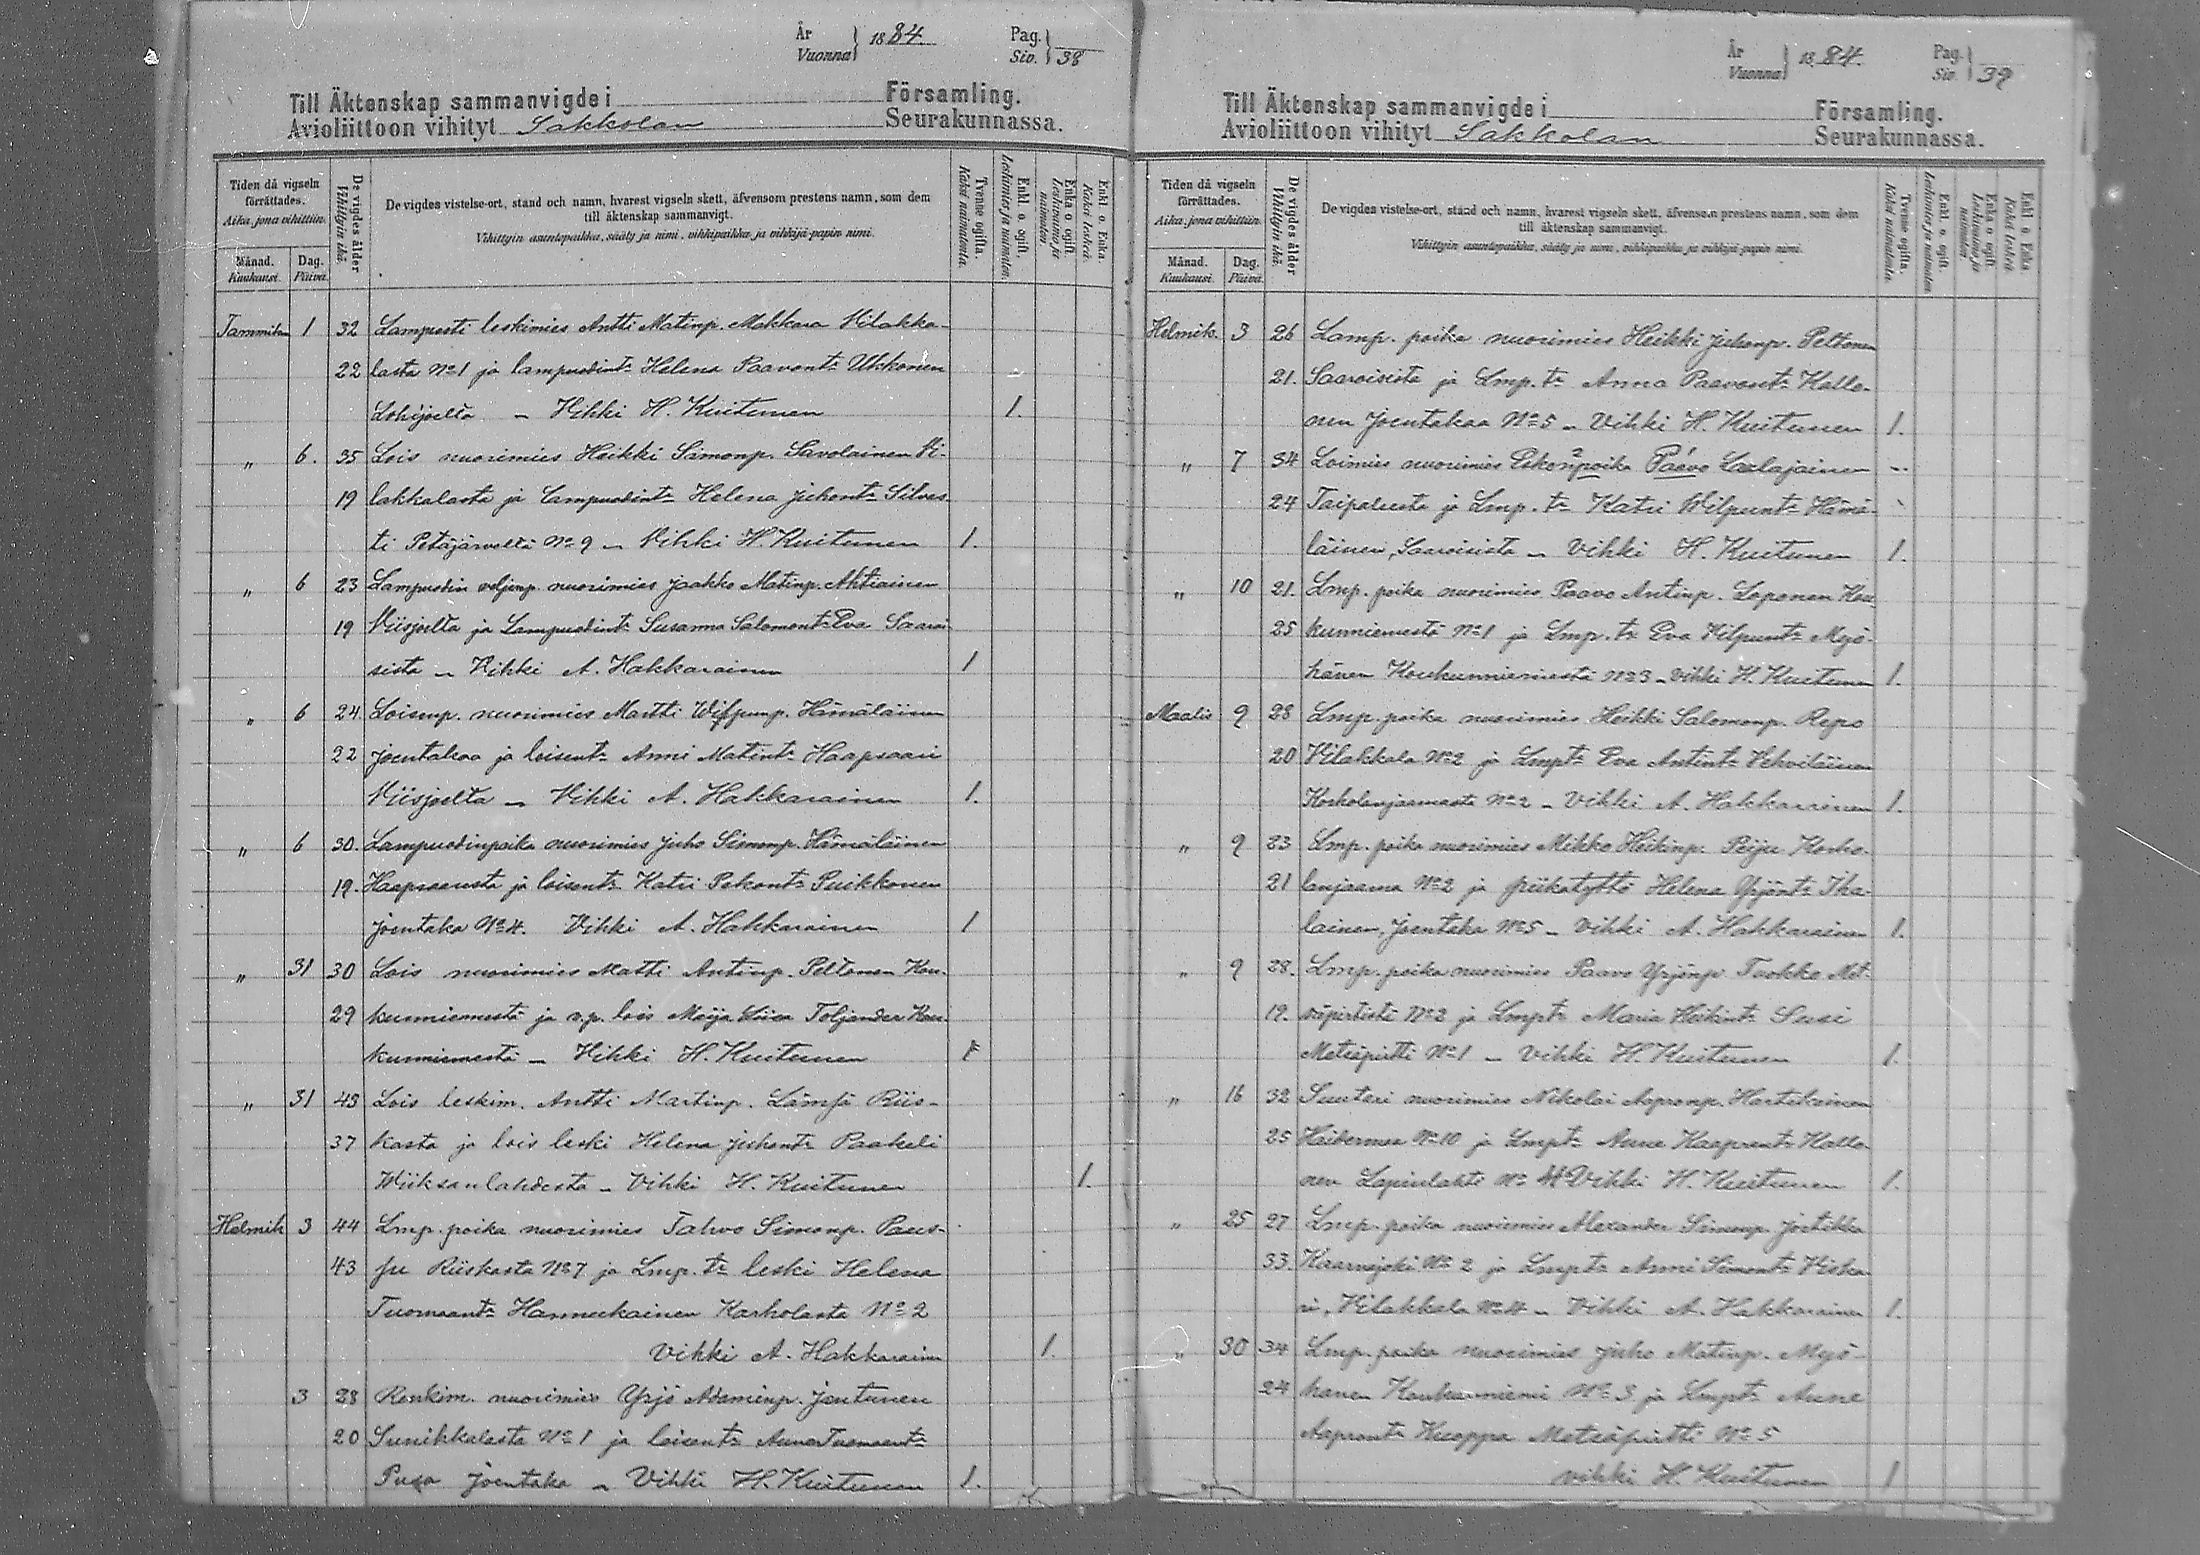 År
Vuonna } 1884.
Pag.
Siv. } 38
Till Äktenskap sammanvigde i Församling.
Avioliittoon vihityt Sakkolan Seurakunnassa.
Tiden då vigseln förrättades.
Aika, jona vihittiin.
Månad.
Kuukausi.
Dag.
Päivä.
De vigdes ålder
Vihittyin ikä.
De vigdes vistelse-ort, stånd och namn, hvarest vigseln skett, äfvensom prestens namn, som dem
till äktenskap sammanvigt.
Vihittyin asuntopaikka, sääty ja nimi, vihkipaikka ja vihkijä-papin nimi.
Tvenne ogifta.
Kaksi naimatonta.
Enkl. o. ogift.
Leskimies ja naimaton.
Enka o. ogift.
Leskivaimo ja naimaton
Enkl. o. Enka.
Kaksi leskeä.
Tammikuu 1 32 Lampuoti leskimies Antti Matinp. Makkara Vilakka-
22 lasta No 1 ja lampuodint. Helena Paavont. Ukkonen
Lohijoelta - Vihki H. Kuitunen 1.
" 6. 35 Lois nuorimies Heikki Simonp. Savolainen Vi-
19 lakkalasta ja lampuodint. Helena Juhont. Silves-
ti Petäjärveltä No 9 - Vihki H. Kuitunen 1.
" 6 23 Lampuodin veljenp. nuorimies Jaakko Matinp. Ahtiainen
19 Viisjoelta ja Lampuodint. Susanna Salomont. Eva Saaroi-
sista - Vihki A. Hakkarainen 1
" 6 24 Loisenp. nuorimies Martti Wilppunp. Hämäläinen
22 Joentakaa ja loisent. Anni Matint. Haapsaari
Viisjoelta - Vihki A. Hakkarainen 1.
" 6 30. Lampuodinpoika nuorimies Juho Simonp. Hämäläinen
19. Haapsaaresta ja loisent. Katri Pekant. Puikkonen
Joentaka No 4. Vihki A. Hakkarainen 1
" 31 30 Lois nuorimies Matti Antinp. Peltonen Kou-
29 kunniemestä ja v.p. lois Maija Liisa Toljander Kou-
kunniemestä - Vihki H. Kuitunen 1
" 31 43 Lois leskim. Antti Martinp. Lämsä Riis-
37 kasta ja lois leski Helena Juhont. Paakeli
Wiiksanlahdesta - Vihki H. Kuitunen 1.
Helmik 3 44 Lmp. poika nuorimies Tahvo Simonp. Paus-
43 pu Riiskasta No 7 ja Lmp. t. leski Helena
Tuomaant. Hannukainen Karholasta No 2
Vihki A. Hakkarainen 1.
3 28 Renkim. nuorimies Yrjö Adaminp. Jantunen
20 Sunikkalasta No 1 ja loisent. Anna Tuomaant.
Pusa Joentaka - Vihki H. Kuitunen 1.
År
Vuonna } 1884.
Pag.
Siv. } 39
Till Äktenskap sammanvigde i Församling.
Avioliittoon vihityt Sakkolan Seurakunnassa.
Tiden då vigseln förrättades.
Aika, jona vihittiin.
Månad.
Kuukausi.
Dag.
Päivä.
De vigdes ålder
Vihittyin ikä.
De vigdes vistelse-ort, stånd och namn, hvarest vigseln skett, äfvensom prestens namn, som dem
till äktenskap sammanvigt.
Vihittyin asuntopaikka, sääty ja nimi, vihkipaikka ja vihkijä-papin nimi.
Tvenne ogifta.
Kaksi naimatonta.
Enkl. o. ogift.
Leskimies ja naimaton.
Enka o. ogift.
Leskivaimo ja naimaton
Enkl. o. Enka.
Kaksi leskeä.
Helmik. 3 26 Lamp. poika nuorimies Heikki Juhonp. Peltonen
21. Saaroisista ja Lmp. t. Anna Paavont. Kallo-
nen Joentakaa No 5 - Vihki H. Kuitunen 1.
" 7 34 Loimies nuorimies Eskonpoika Paavo Laulajainen
24 Taipaleesta ja Lmp. t. Katri Wilpunt. Hämä-
läinen, Saaroisista - Vihki H. Kuitunen 1.
" 10 21. Lmp. poika nuorimies Paavo Antinp. Loponen Kou-
25 kunniemestä No 1 ja Lmp. t. Eva Vilpunt. Myö-
hänen Koukunniemestä No 3 - Vihki H. Kuitunen 1.
Maalis 9 28 Lmp. poika nuorimies Heikki Salomonp. Repo
20 Vilakkala No 2 ja Lmpt. Eva Antint. Vehviläinen
Korholanjaamasta No 2 - Vihki A. Hakkarainen 1.
" 9 23 Lmp. poika nuorimies Mikko Heikinp. Peiju Korho-
21 lanjaama No 2 ja piikatyttö Helena Yrjönt. Iha-
lainen, Joentaka No 5 - Vihki A. Hakkarainen 1.
" 9 28. Lmp. poika nuorimies Paavo Yrjönp. Tuokko Met-
19. säpirtisti No 2 ja Lmpt. Maria Heikint. Susi
Metsäpirtti No 1 - Vihki H. Kuitunen 1.
" 16 32 Suutari nuorimies Nikolai Aapronp. Hartikainen
25 Haitermaa No 10 ja Lmpt. Anna Kaaprent. Kallo-
nen Lapinlahti No 4 Vihki H. Kuitunen 1.
" 25 27 Lmp. poika nuorimies Alexander Simonp. Jortikka
33. Kaarnajoki No 2 ja Lmpt. Anni Simont. Viska-
ri, Vilakkala No 4 - Vihki A. Hakkarainen 1.
" 30 34 Lmp. poika nuorimies Juho Matinp. Myö-
24 hänen Koukunniemi No 3 ja Lmpt. Anna
Aapront. Kuoppa Metsäpirtti No 5
Vihki H. Kuitunen 1